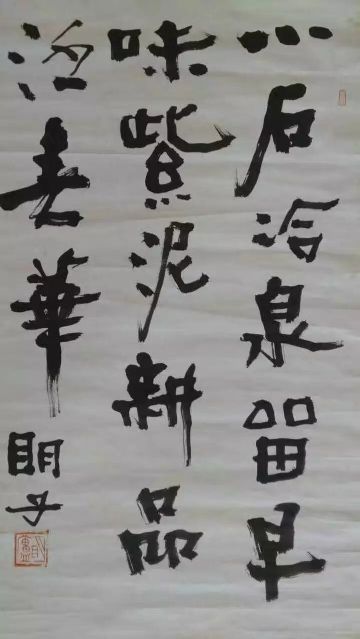 小石冷泉留早
味紫泥新品
泛春華
明子